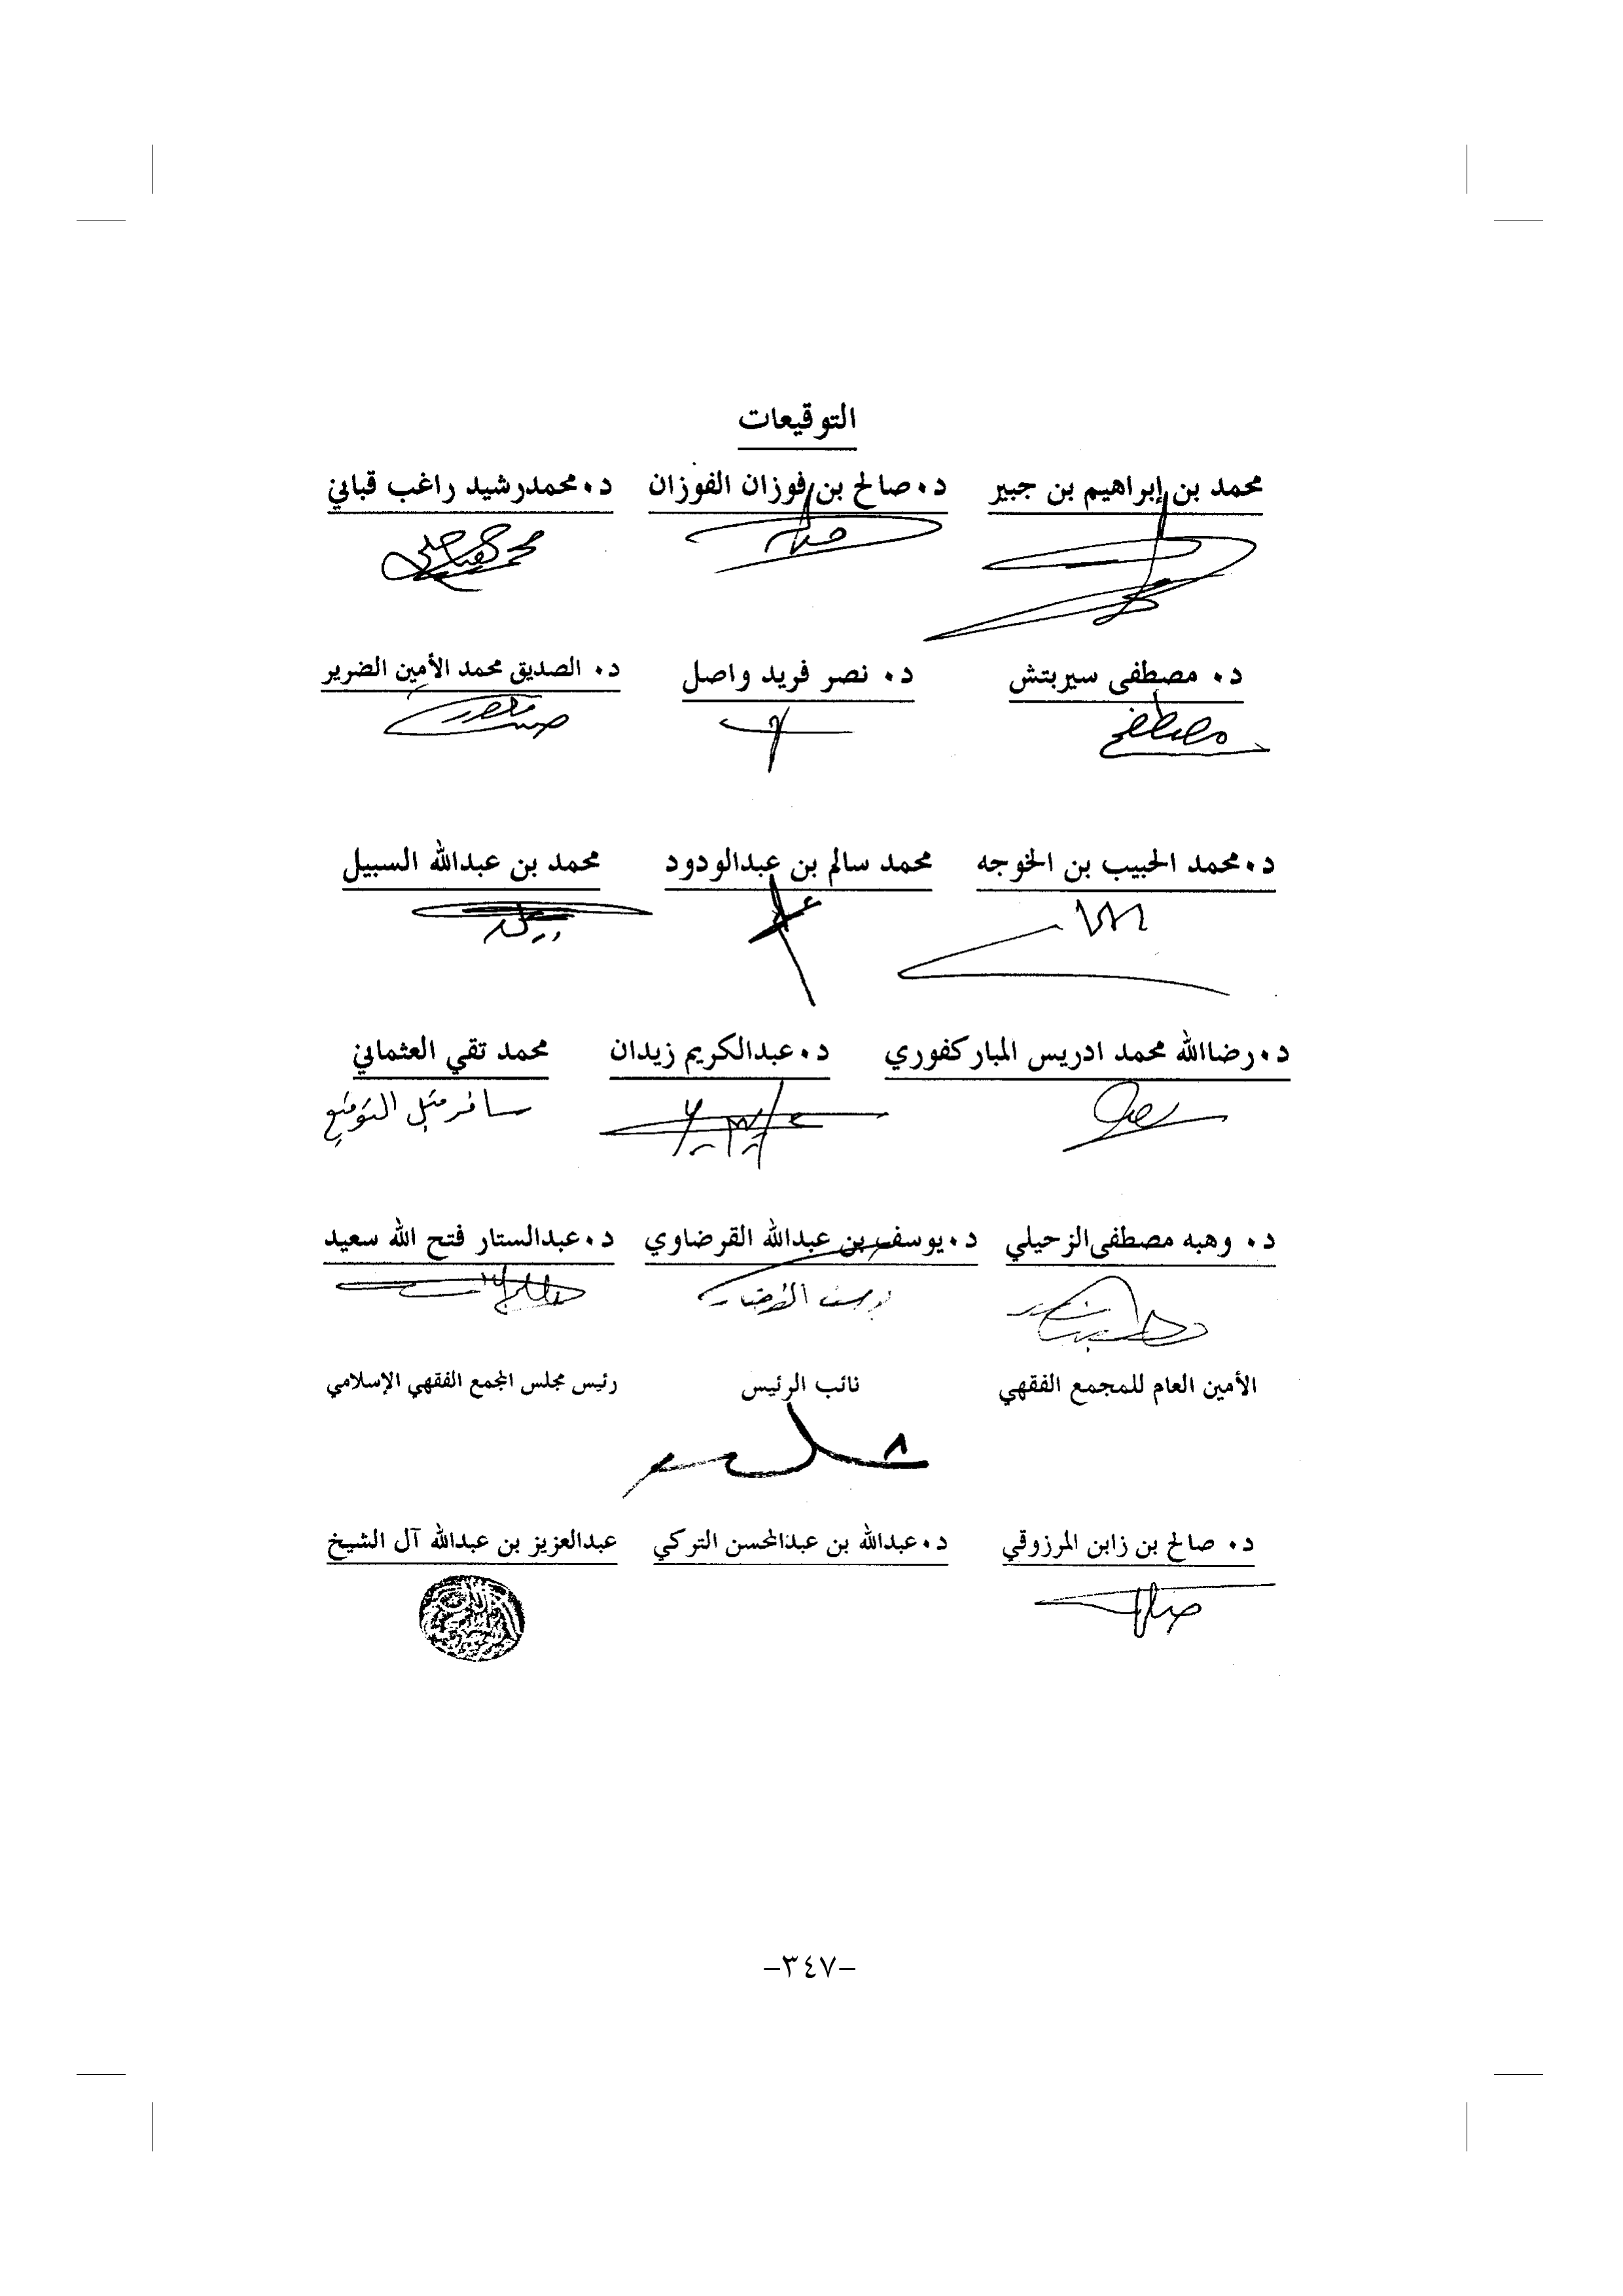 التوقيعات
محمد بن إبراهيم بن جبير د. صالح بن فوزان الفوزان د. محمد رشيد راغب قباني
د. مصطفى سيربتش د. نصر فريد واصل د. الصديق محمد الأمين الضرير
مصطفى
د. محمد الحبيب بن الخوجه محمد سالم بن عبدالودود محمد بن عبدالله السبيل
د. رضاالله محمد ادريس المباركفوري د. عبدالكريم زيدان محمد تقي العثماني
سافر قبل التوقيع
د. وهبه مصطفى الزحيلي د. يوسف بن عبدالله القرضاوي د. عبدالستار فتح الله سعيد
يوسف القرضاوي
الأمين العام للمجمع الفقهي نائب الرئيس رئيس مجلس المجمع الفقهي الإسلامي
د. صالح بن زابن المرزوقي د. عبدالله بن عبدالمحسن التركي عبدالعزيز بن عبدالله آل الشيخ
–٣٤٧–